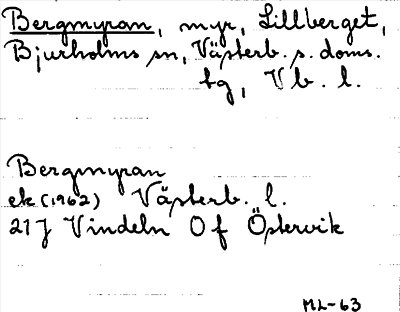 Bergmyran, myr, Lillberget,
Bjurholms sn, Västerb. s. doms.
tg, Vb. l.
Bergmyran
ek (1962) Västerb. l.
21J Vindeln 0f Östervik
ML-63